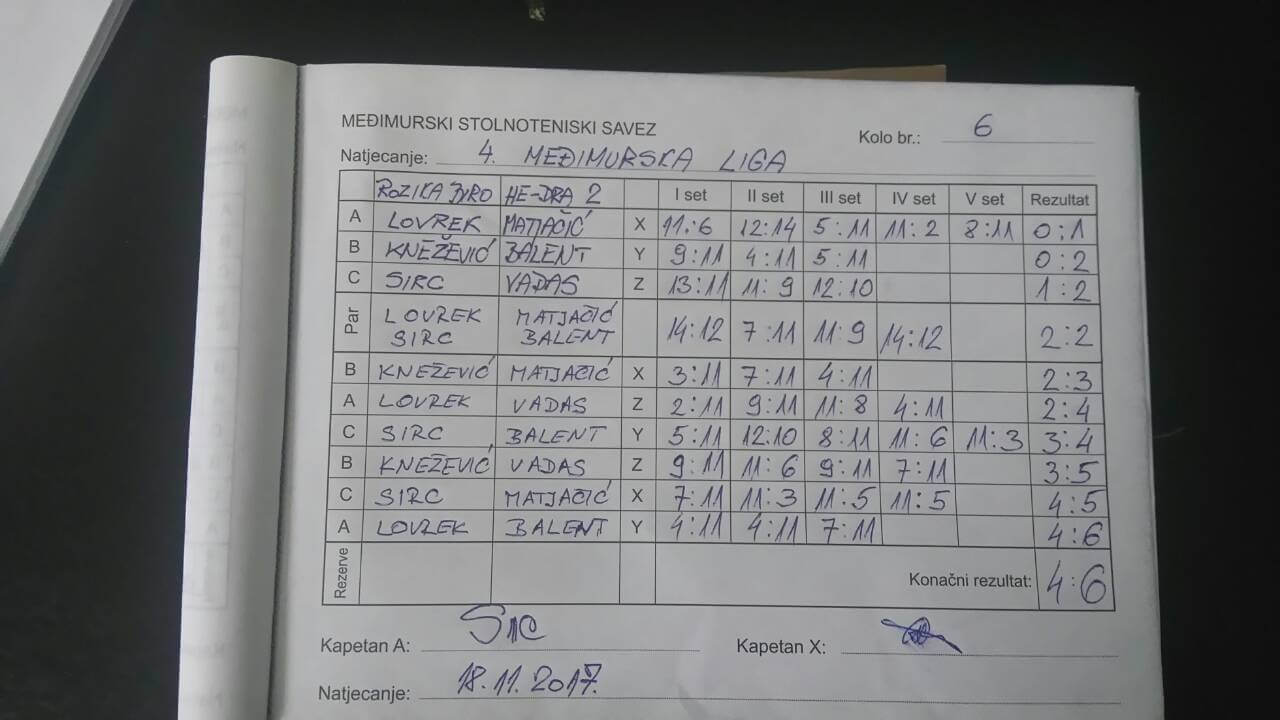 MEĐIMURSKI STOLNOTENISKI SAVEZ
Kolo br.: 6
Natjecanje: 4. MEĐIMURSKA LIGA
ROZIKA BIRO HE-DRA 2 I set II set III set IV set V set Rezultat
A LOVREK MATJAČIĆ X 11:6 12:14 5:11 11:2 8:11 0:1
B KNEŽEVIĆ BALENT Y 9:11 4:11 5:11 0:2
C SIRC VADAS Z 13:11 11:9 12:10 1:2
Par LOVREK MATJAČIĆ 14:12 7:11 11:9 14:12 2:2
SIRC BALENT
B KNEŽEVIĆ MATJAČIĆ X 3:11 7:11 4:11 2:3
A LOVREK VADAS Z 2:11 9:11 11:8 4:11 2:4
C SIRC BALENT Y 5:11 12:10 8:11 11:6 11:3 3:4
B KNEŽEVIĆ VADAS Z 9:11 11:6 9:11 7:11 3:5
C SIRC MATJAČIĆ X 7:11 11:3 11:5 11:5 4:5
A LOVREK BALENT Y 4:11 4:11 7:11 4:6
Rezerve Konačni rezultat: 4:6
Kapetan A: Sirc Kapetan X:
Natjecanje: 18.11.2017.